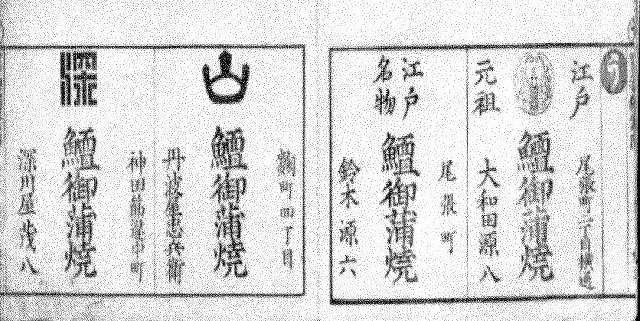 う
江戸
尾張町二丁目横通
鱣御蒲焼
元祖
大和田源八
江戸
名物
尾張町
鱣御蒲焼
鈴木源六
麹町四丁目
山
鱣御蒲焼
丹波屋忠兵衛
神田筋違中町
深
鱣御蒲焼
深川屋茂八